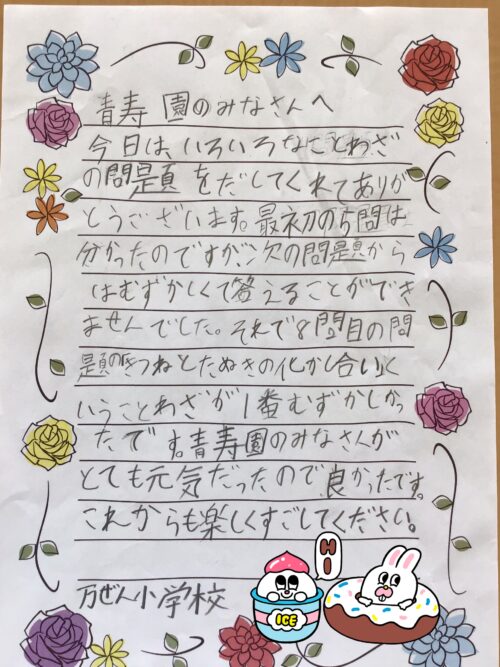 青寿園のみなさんへ
今日は、いろいろなことわざ
の問題をだしてくれてありが
とうございます。最初の5問は
分かったのですが、次の問題から
はむずかしくて答えることができ
ませんでした。それで8問目の問
題のきつねとたぬきの化かし合いと
いうことわざが1番むずかしかっ
たです。青寿園のみなさんが
とても元気だったので良かったです。
これからも楽しくすごしてください。
万ぜん小学校
HI
ICE